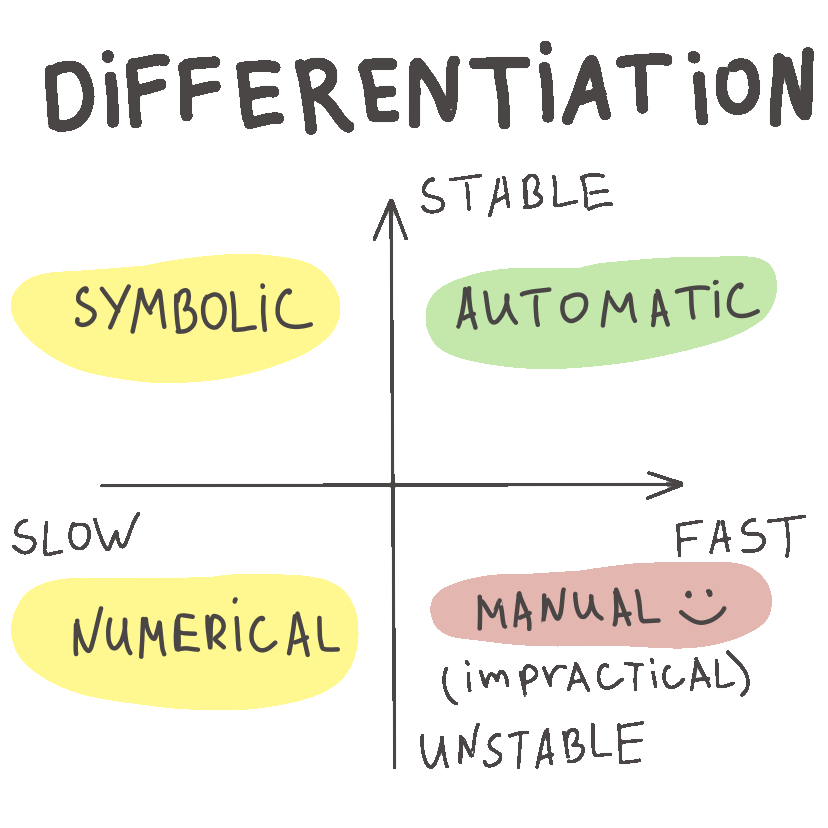 DiFFERENTiATiON
STABLE
SYMBOLiC
AUTOMATiC
SLOW
FAST
NUMERiCAL
MANUAL
(imPRACTiCAL)
UNSTABLE